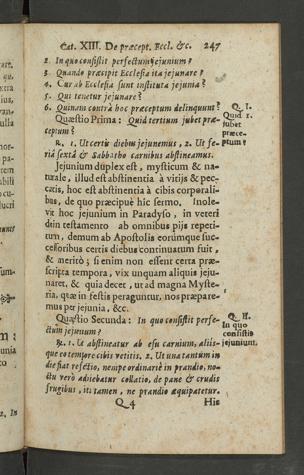 Cat. XIII. De præcept. Eccl. &c. 247
2. In quo consistit perfectum jejunium?
3. Quando præcipit Ecclesia ita jejunare?
4. Cur ab Ecclesia sunt instituta jejunia?
5. Qui tenetur jejunare?
6. Quinam contrà hoc præceptum delinquunt?
Quæstio Prima: Quid tertium jubet præ-
ceptum?
Q. I.
Quid 3.
jubet
præce-
ptum?
R. 1. Ut certis diebus jejunemus, 2. Ut fe-
riâ sextâ & Sabbatho carnibus abstineamus.
Jejunium duplex est, mysticum & na-
turale, illud est abstinentia à vitijs & pec-
catis, hoc est abstinentia à cibis corporali-
bus, de quo præcipuè hîc sermo. Inole-
vit hoc jejunium in Paradyso, in veteri
dein testamento ab omnibus pijs repeti-
tum, demum ab Apostolis eorumque suc-
cessoribus certis diebus continuatum fuit,
& meritò; si enim non essent certa præ-
scripta tempora, vix unquam aliquis jeju-
naret, & quia decet, ut ad magna Myste-
ria, quæ in festis peraguntur, nos præpare-
mus per jejunia, &c.
Quæstio Secunda: In quo consistit perfe-
ctum jejunium?
Q. II.
In quo
consistit
jejunium.
R. 1. Ut abstineatur ab esu carnium, aliis-
que eo tempore cibis vetitis, 2. Ut una tantùm in
die fiat refectio, nempe ordinariè in prandio, no-
ctu verò adhibeatur collatio, de pane & crudis
frugibus, ità tamen, ne prandio æquipatetur.
Q 4 Hic